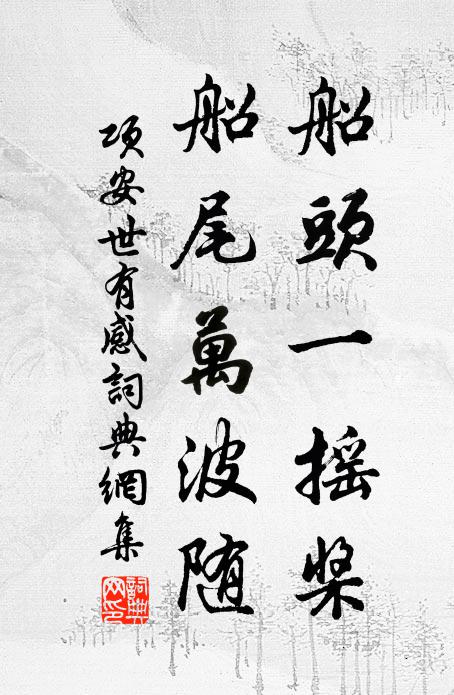 船頭一摇槳
船尾萬波随
项安世有感詞典網集
詞典網印